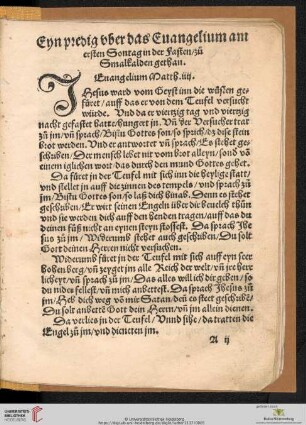 Eyn predig vber das Euangelium am
ersten Sontag in der Fasten/zů
Smalkalden gethan.
Euangelium Matth. iiij.
Jhesus ward vom Geyst inn die wůsten ge-
fůret / auff das er von dem Teufel versucht
wůrde. Vnd da er viertzig tag vnd viertzig
nacht gefastet hatte/hungert jn. Vñ der Versucher trat
zů jm/vñ sprach/Bistu Gottes son/so sprich/dz dise stein
brot werden. Vnd er antwortet vñ sprach/Es stehet ge-
schriben/Der mensch lebet nit vom brot alleyn/sond' vō
einem iglichen wort/das durch den mund Gottes gehet.
Da fůret jn der Teufel mit sich inn die heylige statt/
vnd stellet jn auff die zinnen des tempels/ vnd sprach zů
jm/Bistu Gottes son/so laß dich hinab. Denn es stehet
geschriben/Er wirt seinen Engeln ůber dir beuelch thůn
vnd sie werden dich auff den henden tragen/auff das du
deinen fůß nicht an eynen steyn stossest. Da sprach Jhe
sus zů jm/ Widerumb stehet auch geschriben/Du solt
Gott deinen Herren nicht versuchen.
Widerumb fůret jn der Teufel mit sich auff eyn seer
hohen berg/vñ zeyget jm alle Reich der welt/vñ jre herr
licheyt/vñ sprach zů jm/Das alles will ich dir geben/so
du nider fellest/vñ mich anbettest. Da sprach Jhesus zů
jm/Heb dich weg vō mir Satan/den es steet geschribē/
Du solt anbettē Gott dein Herrn/vñ jm allein dienen.
Da verlies jn der Teufel / Vnnd sihe/da tratten die
Engel zů jm/vnd dieneten jm.
A ij
UNIVERSITÄTS-
BIBLIOTHEK
HEIDELBERG
© Universitätsbibliothek Heidelberg